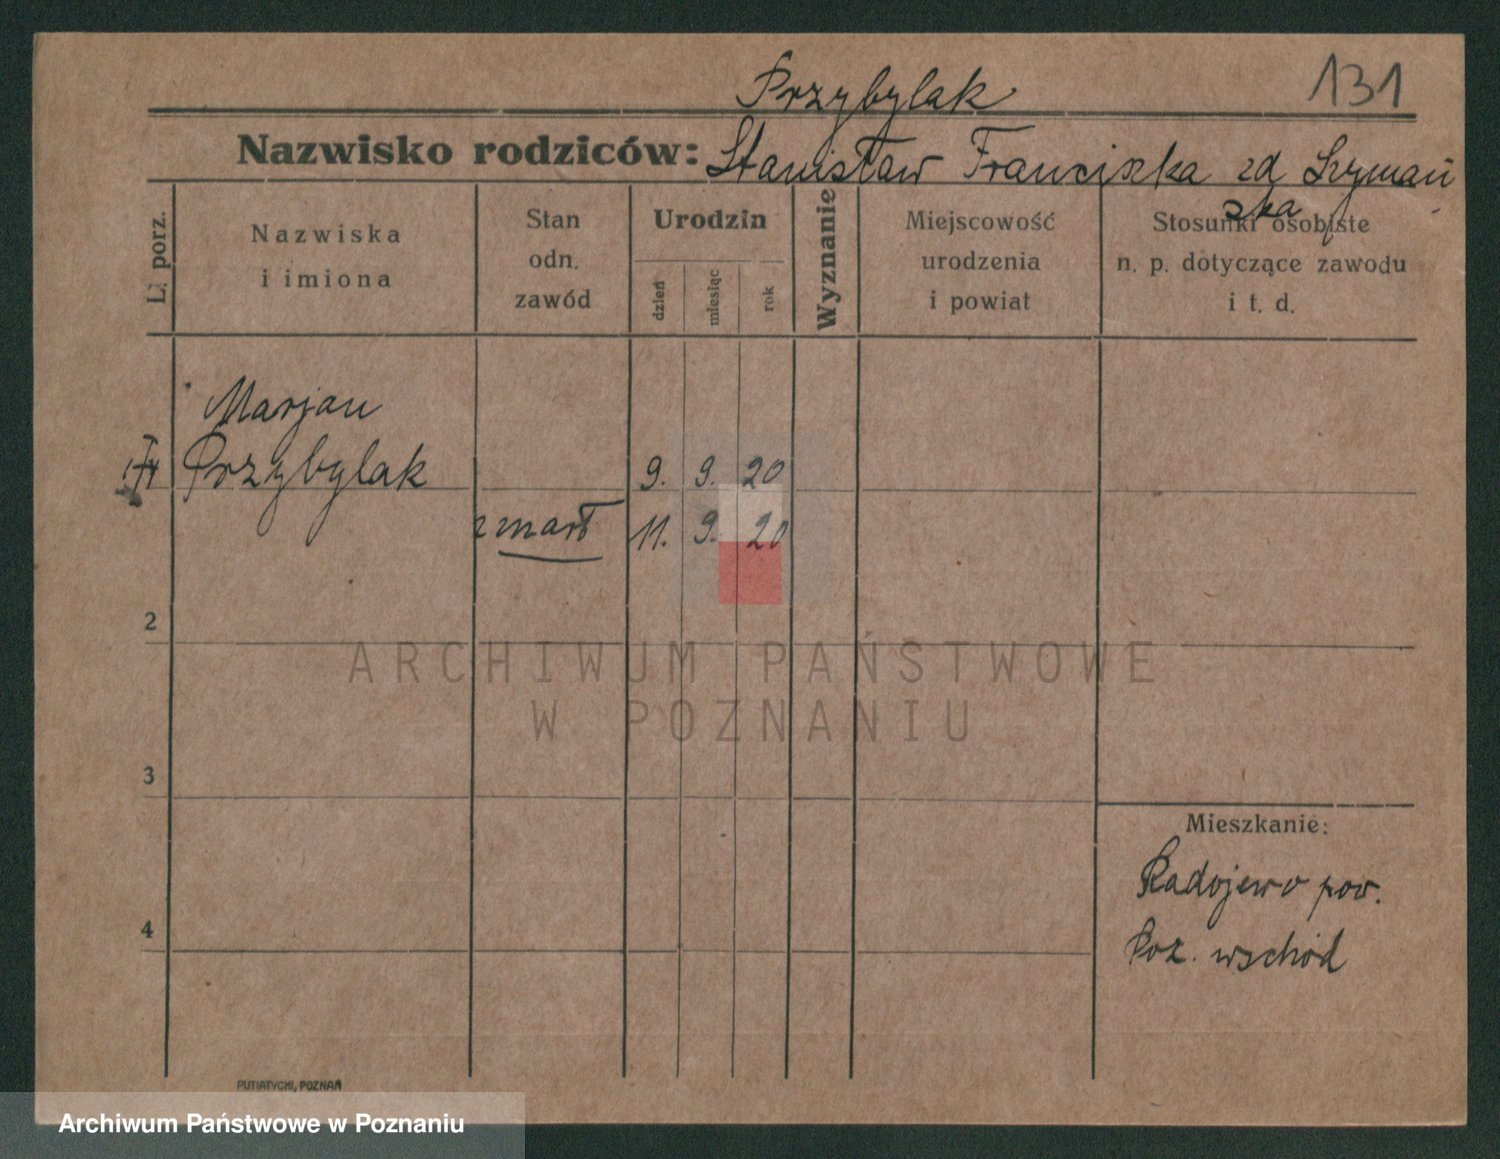 131
Przybylak
Nazwisko rodziców: Stanisław Franciszka zd Szymań
ska
L. porz.
Nazwiska
i imiona
Stan
odn.
zawód
Urodzin
dzień
miesiąc
rok
Wyznanie
Miejscowość
urodzenia
i powiat
Stosunki osobiste
n. p. dotyczące zawodu
i t. d.
Marjan
Przybylak 9. 9. 20
zmarł 11. 9. 20
2
ARCHIWUM PAŃSTWOWE
W POZNANIU
3
Mieszkanie:
Radojewo pow.
Poz. wschód
4
PUTIATYCKI, POZNAŃ
Archiwum Państwowe w Poznaniu